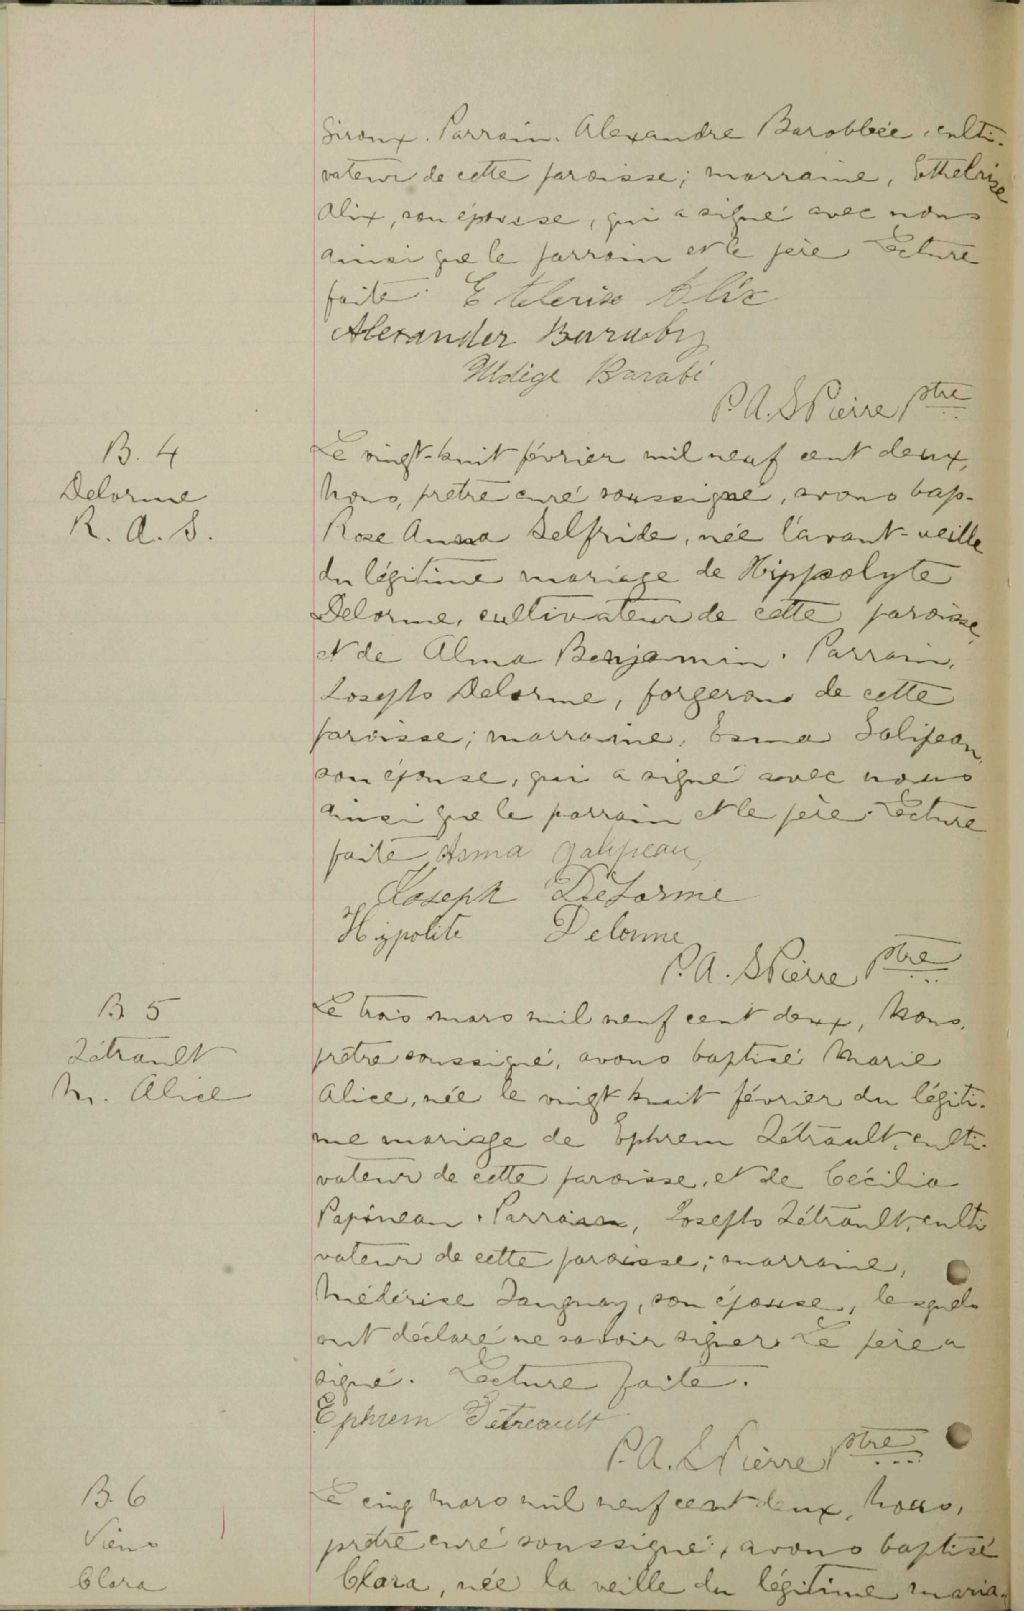 Giroux. Parrain, Alexandre Barobbée, culti-
vateur de cette paroisse; marraine, Ethelrise
Alix, son épouse, qui a signé avec nous
ainsi que le parrain et le père Lecture
faite. Etelerise Alix
Alexander Buraby
Barabé
P.A. St Pierre ptre
B. 4
Delorme
R. A. S.
Le vingt-huit février mil neuf cent deux,
Nous, prêtre curé soussigné, avons bap-
Rose Anna Selfride, née l'avant-veille
du légitime mariage de Hippolyte
Delorme, cultivateur de cette paroisse,
et de Alma Benjamin. Parrain,
Joseph Delorme, forgeron de cette
paroisse; marraine, Esma Galipeau,
son épouse, qui a signé avec nous
ainsi que le parrain et le père. Lecture
faite Asma Galipeau
Joseph DeLorme
Hypolite Delorme
P.A. St Pierre ptre
B 5
Tétrault
M. Alice
Le trois mars mil neuf cent deux, Nous,
prêtre soussigné, avons baptisé Marie
Alice, née le vingt huit février du légiti-
me mariage de Ephrem Tétrault, culti-
vateur de cette paroisse, et de Cécilia
Papineau. Parrain, Joseph Tétrault, culti
vateur de cette paroisse; marraine,
Médérise Tanguay, son épouse, lesquels
ont déclaré ne savoir signer. Le père a
signé. Lecture faite.
Ephrem Tétreault
P.A. St Pierre ptre
B. 6
Viens
Clara
Le cinq mars mil neuf cent deux, Nous,
prêtre curé soussigné, avons baptisé
Clara, née la veille du légitime maria-